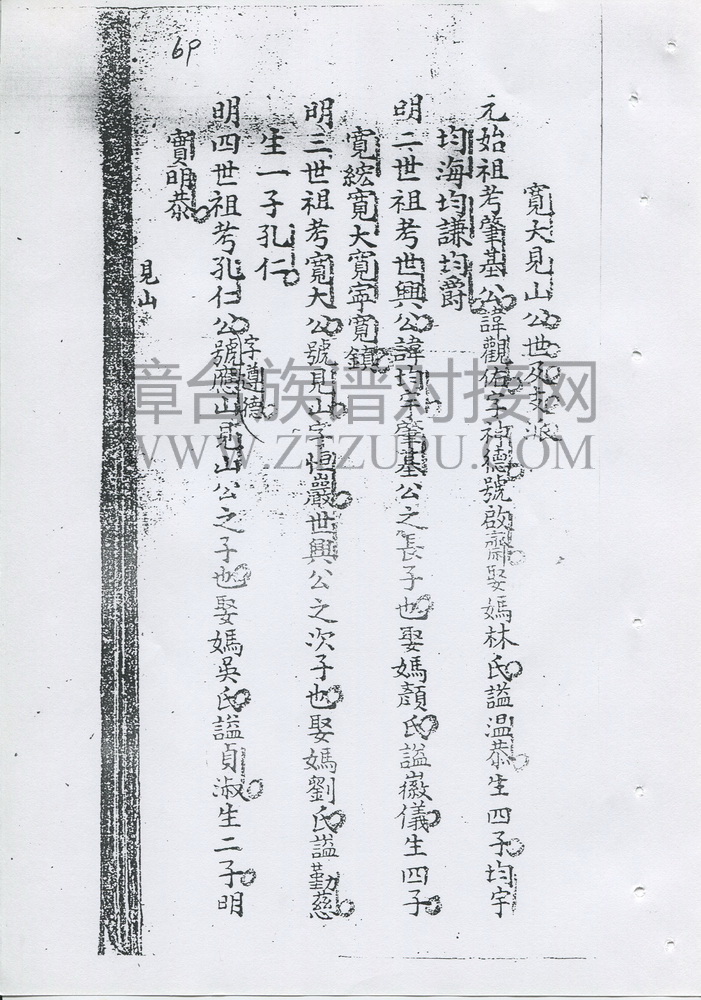 6P
寬大見山公世及支派
元始祖考肇基公諱觀佑字神德號啟齋娶媽林氏謚温恭生四子均宇
均海均謙均爵
明二世祖考世興公諱均宇肇基公之長子也娶媽顏氏謚徽儀生四子
寬綋寬大寬寧寬鎮
明三世祖考寬大公號見山字恒巖世興公之次子也娶媽劉氏謚勤慈
生一子孔仁
明四世祖考孔仁公號應山見山公之子也娶媽吳氏謚貞淑生二子明
字遵德
實明恭
見山
章台族谱对接网
WWW.ZTZUPU.COM